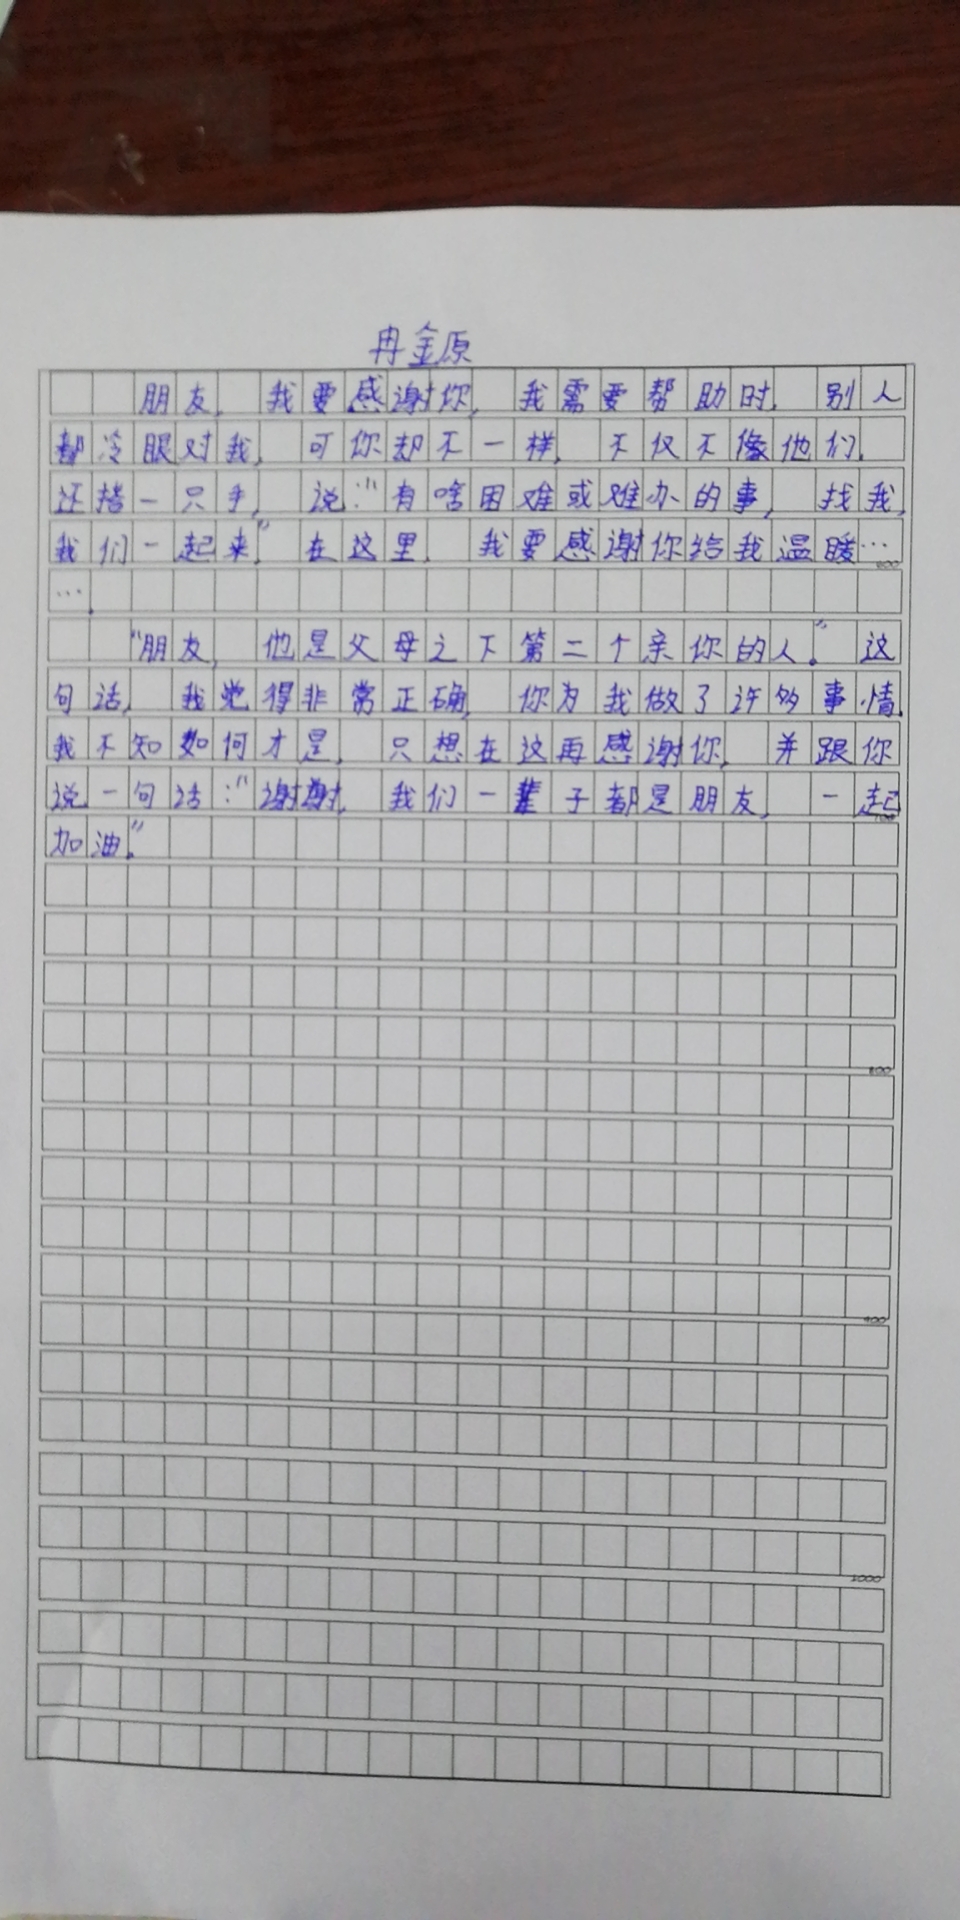 冉金原
朋友,我要感谢你,我需要帮助时,别人
都冷眼对我,可你却不一样,不仅不像他们,
还搭一只手,说:“有啥困难或难办的事,找我,
我们一起来”在这里,我要感谢你给我温暖…
200
…。
“朋友,他是父母之下第二个亲你的人。”这
句话,我觉得非常正确,你为我做了许多事情,
我不知如何才是,只想在这再感谢你,并跟你
说一句话:“谢谢,我们一辈子都是朋友,一起
加油。”
800
900
1000